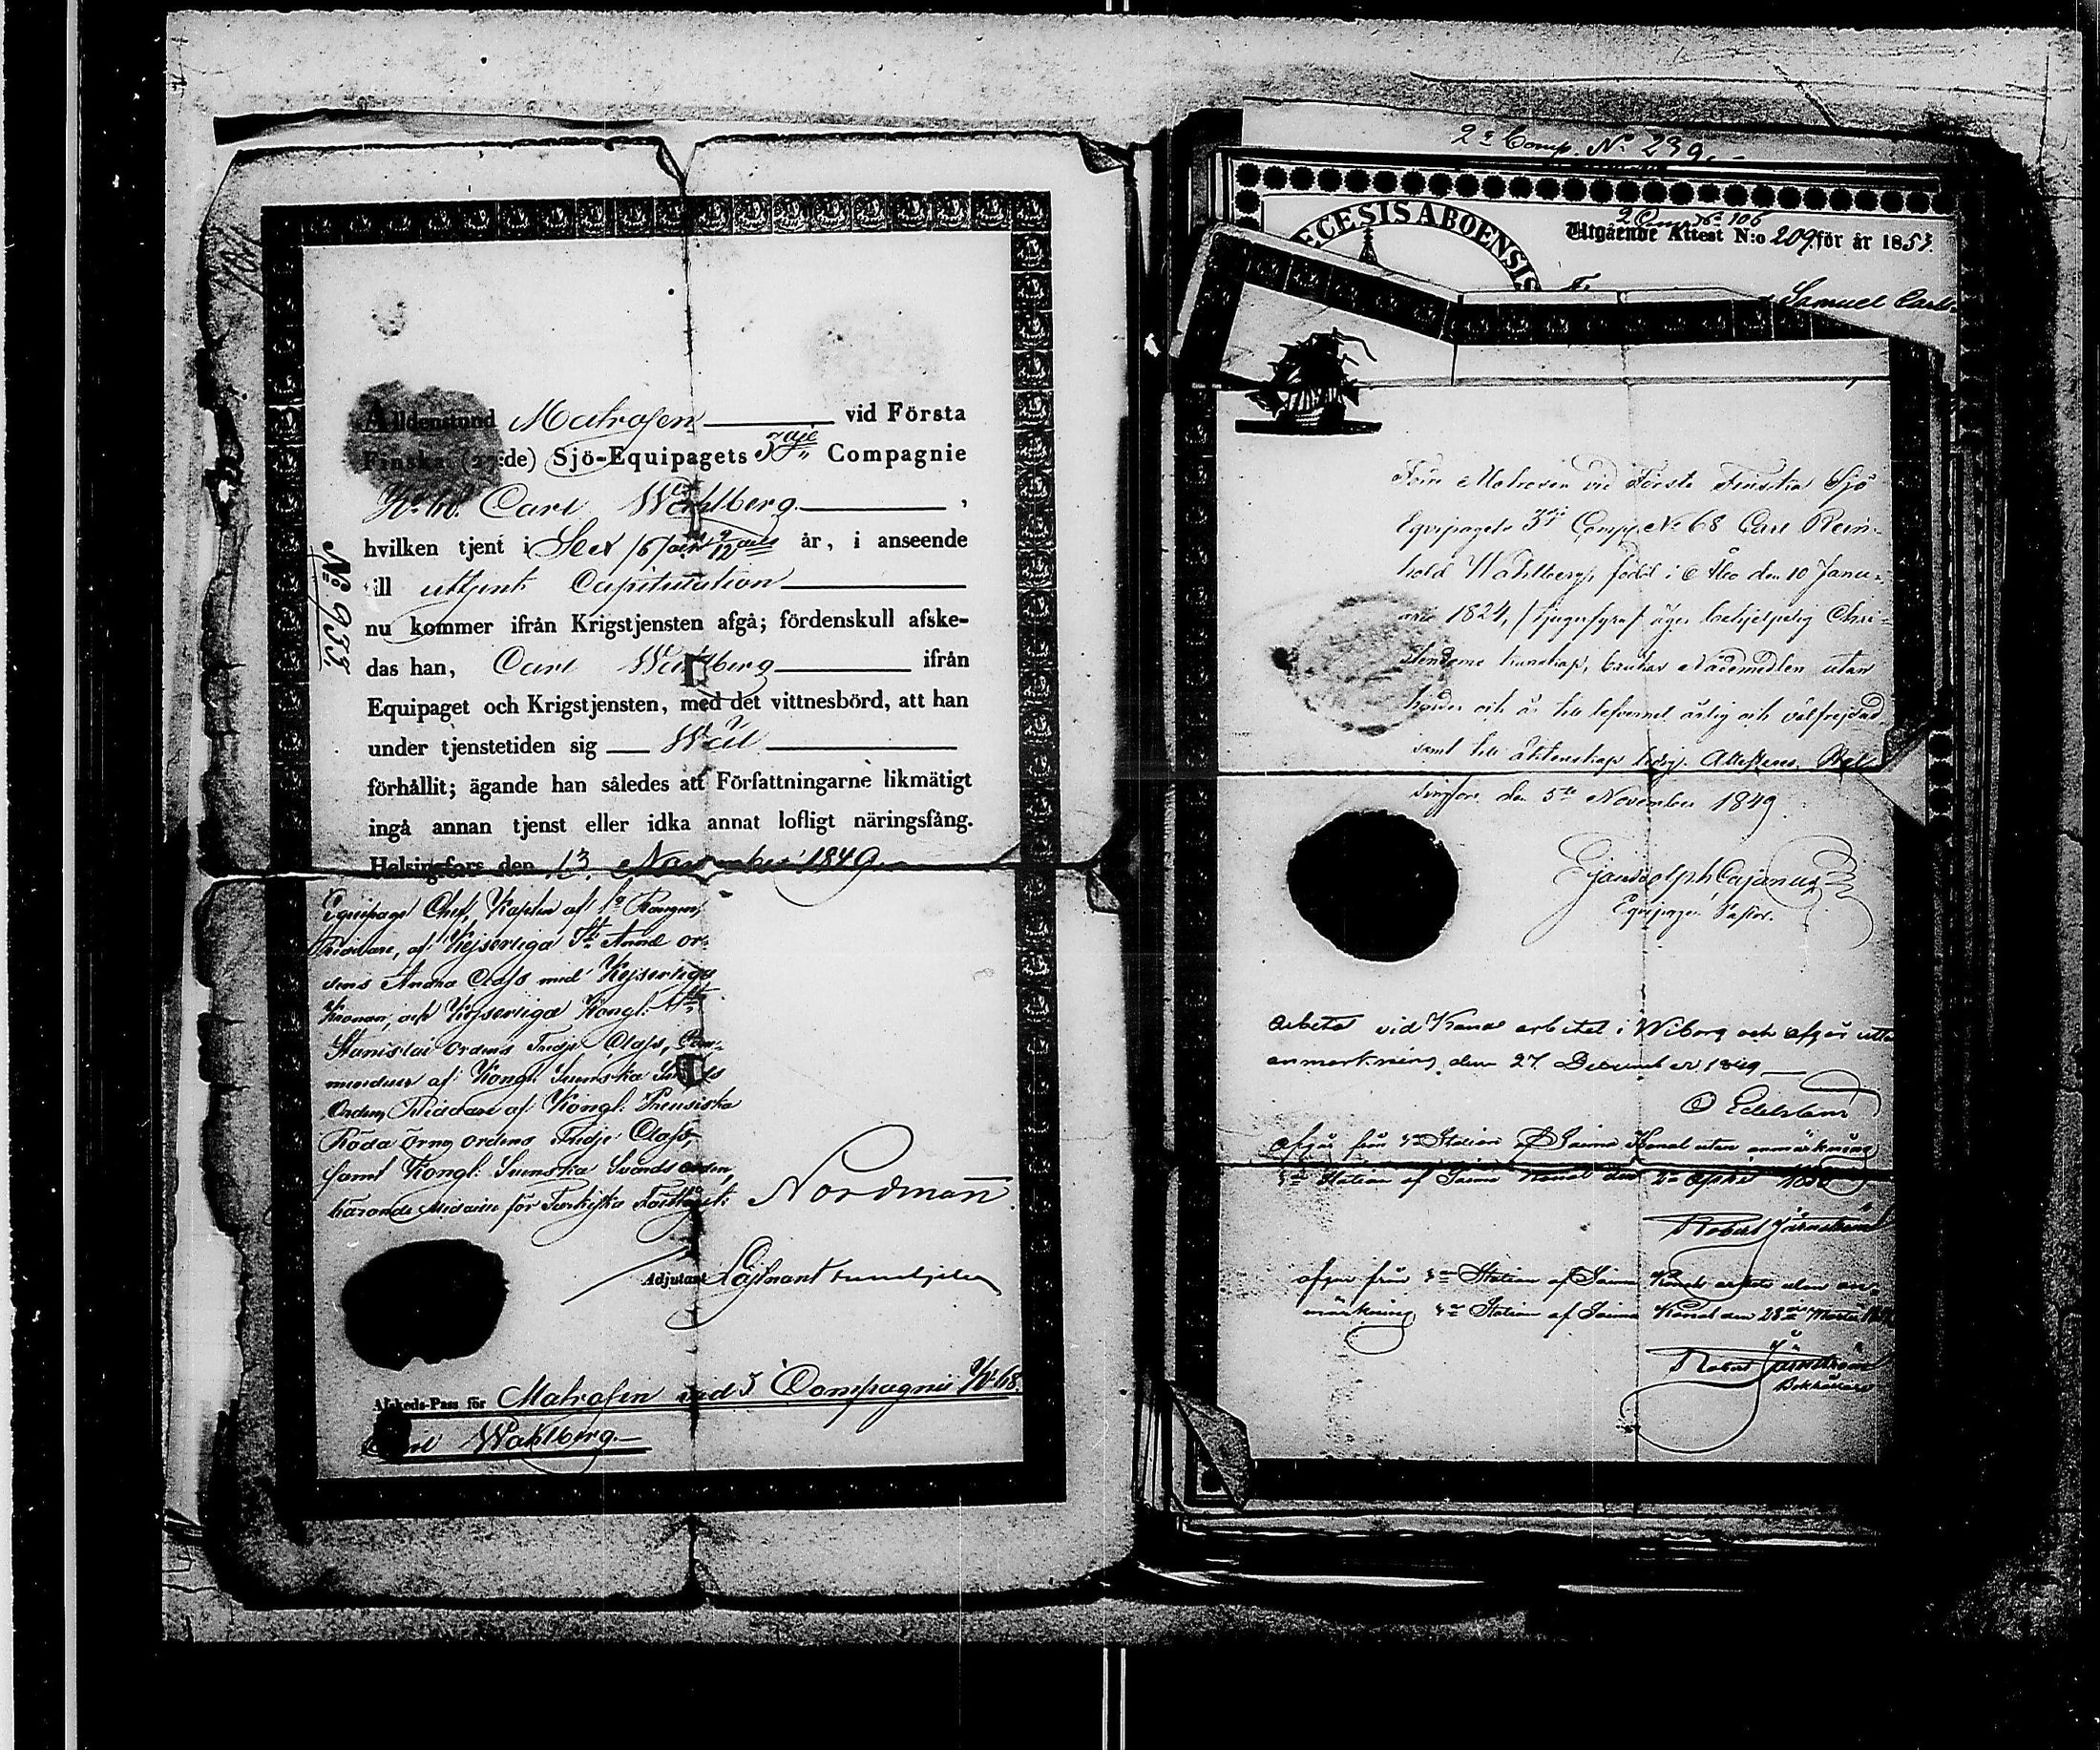 701
Alldenstund Matrosen vid Första
Finska (27:de) Sjö-Equipagets 3dje Compagnie
No 68. Carl Wahlberg,
hvilken tjent i Sex /6/ och 9/12 dels år, i anseende
till uttjent Capitulation
nu kommer ifrån Krigstjensten afgå; fördenskull afske-
das han, Carl Wahlberg ifrån
Equipaget och Krigstjensten, med det vittnesbörd, att han
under tjenstetiden sig Wäl
förhållit; ägande han således att Författningarne likmätigt
ingå annan tjenst eller idka annat lofligt näringsfång.
Helsingfors den 13 November 1849.
No 933.
Equipage Chef, Kapten af 1a Rangen,
Riddare, af Kejserliga St Annæ or-
dens Andra Class med Kejserliga
Kronan, och Kejserliga Kongl: Sti
Stanislai Ordens Tredje Class, Com-
mendeur af Kongl: Svenska Svärds
Orden, Riddare af Kongl: Preusiska
Röda örns ordens Tredje Class,
samt Kongl: Svenska Svärds orden,
bärande Medaille för Turkiska Fälttåget: Nordman
Adjutant Löjtnant
Afskeds-Pass för Matrosen vid 3 Compagnie No 68.
Carl Wahlberg.
2a Comp. No 239.
ECESIS ABOENSIS
2 Comp No 106
Utgående Attest N:o 209 för år 1853.
Samuel Carl
Förre Matrosen vid Första Finska Sjö
Equipagets 3dje Comp. No 68 Carl Rein-
hold Wahlberg, född i Åbo den 10 Janu-
arii 1824, /tjugufyra/ äger behjelpelig Chri-
stendoms kunskap, brukar Nådemedlen utan
hinder och är till lefvernet ärlig och välfrejdad
samt till äktenskap ledig. Attesteras. Hel-
singfors den 5te November 1849.
Cajanus
Equipage Pastor.
Arbetat vid Kanal arbetet i Wiborg och afgår utan
anmerkning den 27 December 1849
O Edelstam
afgår från Station af Saima Kanal utan anmärkning
Station af Saima Kanal den
Robert Järnström
afgår från Station af Saima Kanal arbete utan an-
märkning, Station af Saima Kanal den 28 Martii
Robert Järnström
Bokhållare